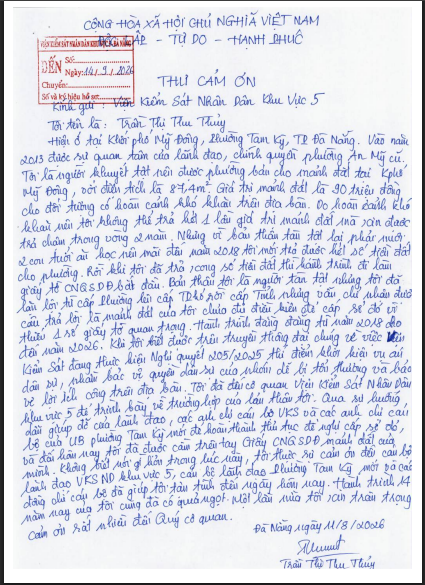 CỘNG HÒA XÃ HỘI CHỦ NGHĨA VIỆT NAM
ĐỘC LẬP - TỰ DO - HẠNH PHÚC
VIỆN KIỂM SÁT NHÂN DÂN KHU VỰC 5 - ĐÀ NẴNG
ĐẾN
Số:
Ngày: 14/9/2026
Chuyển:
Số và ký hiệu hồ sơ:
THƯ CẢM ƠN
Kính gửi: Viện Kiểm Sát Nhân Dân Khu Vực 5
Tôi tên là: Trần Thị Thu Thủy
Hiện ở tại Khối phố Mỹ Đông, Phường Tam Kỳ, TP Đà Nẵng. Vào năm
2013 được sự quan tâm của lãnh đạo, chính quyền phường An Mỹ cũ.
Tôi là người khuyết tật nên được phường bán cho mảnh đất tại Kphố
Mỹ Đông, với diện tích là 87,4m² Giá trị mảnh đất là 90 triệu đồng
cho đối tượng có hoàn cảnh khó khăn trên địa bàn. Do hoàn cảnh khó
khăn nên tôi không thể trả hết 1 lần giá trị mảnh đất mà xin được
trả chậm trong vòng 2 năm. Nhưng vì bản thân tàn tật lại phải nuôi
2 con tuổi ăn học nên mãi đến năm 2018 tôi mới trả được hết số tiền đất
cho phường. Rồi khi tôi đã trả xong số tiền đất thì hành trình đi làm
giấy tờ CNQSDĐ bắt đầu. Bản thân tôi là người tàn tật nhưng tôi đã
lần lội từ cấp Phường lên cấp TP rồi cấp Tỉnh nhưng vẫn chỉ nhận được
câu trả lời là mảnh đất của tôi chưa đủ điều kiện để cấp sổ đỏ vì
thiếu 1 số giấy tờ quan trọng. Hành trình đằng đẵng từ năm 2018 cho
đến năm 2026. Khi tôi biết được trên truyền thông đại chúng về việc Viện
Kiểm Sát đang thực hiện Nghị quyết 205/2025 thí điểm khởi kiện vụ án
dân sự, nhằm bảo vệ quyền dân sự của nhóm dễ bị tổn thương và bảo
vệ lợi ích công trên địa bàn. Tôi đã đến cơ quan Viện Kiểm Sát Nhân Dân
khu vực 5 để trình bày về trường hợp của bản thân tôi. Qua sự hướng
dẫn giúp đỡ của lãnh đạo, các anh chị cán bộ VKS và các anh chị cán
bộ của UB phường Tam Kỳ mới để hoàn thành thủ tục đề nghị cấp sổ đỏ,
và đến hôm nay tôi đã được cầm trên tay Giấy CNQSDĐ mảnh đất của
mình. Không biết nói gì hơn trong lúc này, tôi thực sự cảm ơn đến cán bộ
lãnh đạo VKS ND khu vực 5, cán bộ lãnh đạo Phường Tam Kỳ mới và các
đồng chí cán bộ đã giúp tôi tận tình đến ngày hôm nay. Hành trình 14
năm nay của tôi cũng đã có quả ngọt. Một lần nữa tôi xin trân trọng
cảm ơn rất nhiều đến Quý cơ quan.
Đà Nẵng ngày 11/8/2026
Trần Thị Thu Thủy